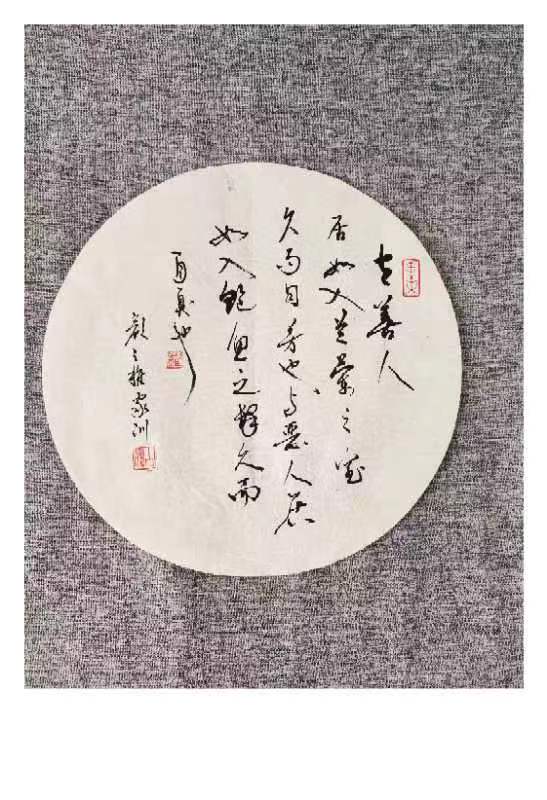 与善人
居如入芝蘭之室
久而自芳也与恶人居
如入鲍鱼之肆久而
自臭也
颜之推家训